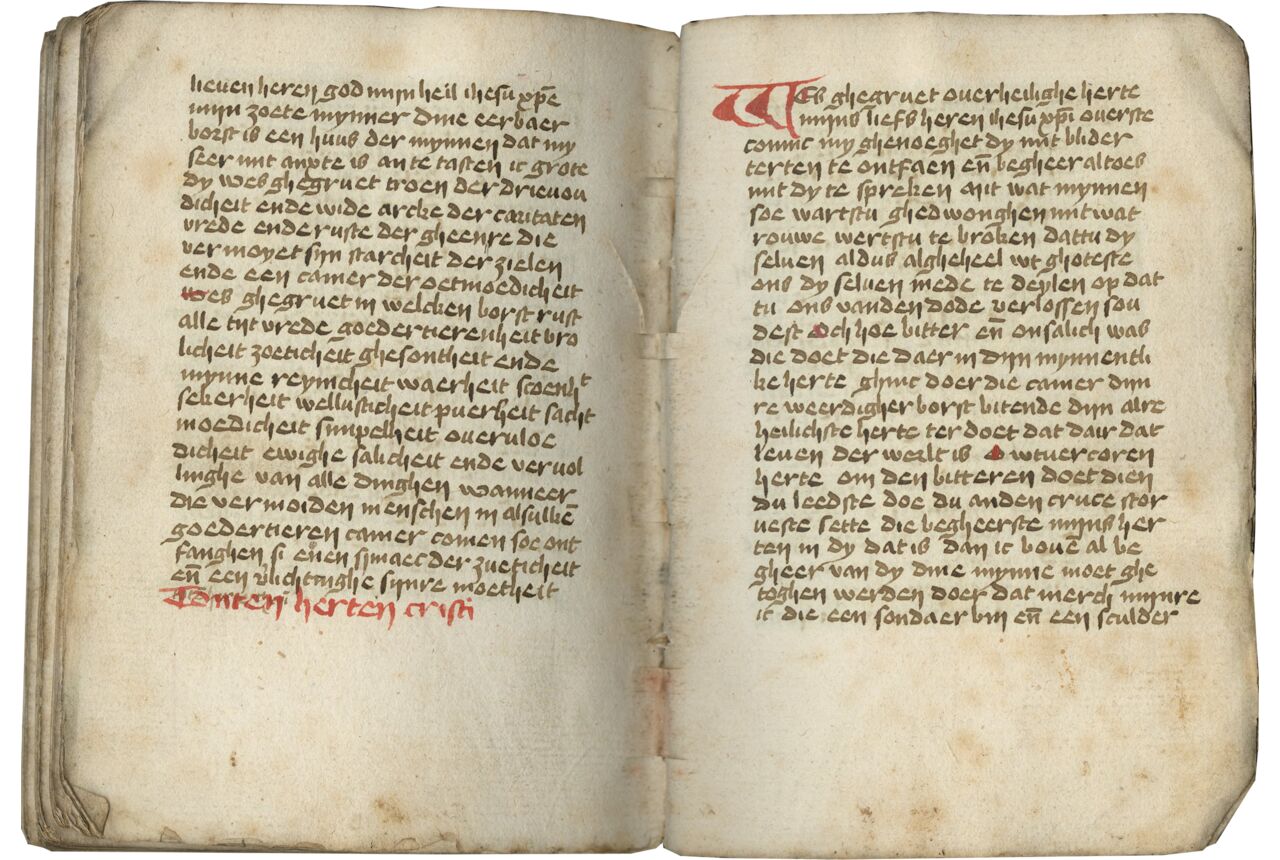 lieven heren god mijn heil ihesu xpē
mijn zoete mynner dine eerbaer
borst is een huus der mynnen dat my
seer mit anxte is an te tasten ic grote
dy wes ghegruet troen der drievou
dicheit ende wide arcke der caritaten
vrede ende ruste der gheenre die
vermoyet sijn starcheit der zielen
ende een camer der oetmoedicheit
Wes ghegruet in welcken borst rust
alle tijt vrede goedertierenheit vro
licheit zoeticheit ghesontheit ende
mynne reynicheit waerheit scoenht
sekerheit wellusticheit puerheit sacht
moedicheit simpelheit overvloe
dicheit ewighe salicheit ende vervol
linghe van alle dinghen wanneer
die vermoiden menschen in alsulkē
goedertieren camer comen soe ont
fanghen si enen smaec der zueticheit
eñ een verlichtinghe sijnre moetheit
Totten herten cristi
Wes ghegruet overheilighe herte
mijns liefs heren ihesu xpi overste
coninc my ghenoeghet dy mit blider
herten te ontfaen eñ begheer altoes
mit dy te spreken Mit wat mynnen
soe wartstu ghedwonghen mit wat
rouwe wertstu te broken dattu dy
selven aldus algheheel wt ghoteste
ons dy selven mede te deylen op dat
tu ons vanden dode verlossen sou
dest Och hoe bitter eñ onsalich was
die doet die daer in dijn mynnentli
ke herte ghinc doer die camer dijn
re weerdigher borst bitende dijn alre
heilichste herte ter doet dat dair dat
leven der werlt is O wtvercoren
herte om den bitteren doet dien
du leedste doe du anden cruce stor
veste sette die begheerste mijns her
ten in dy dat is dan ic bovē al be
gheer van dy dine mynne moet ghe
toghen werden doer dat merch mijnre
ic die een sondaer bin eñ een sculder